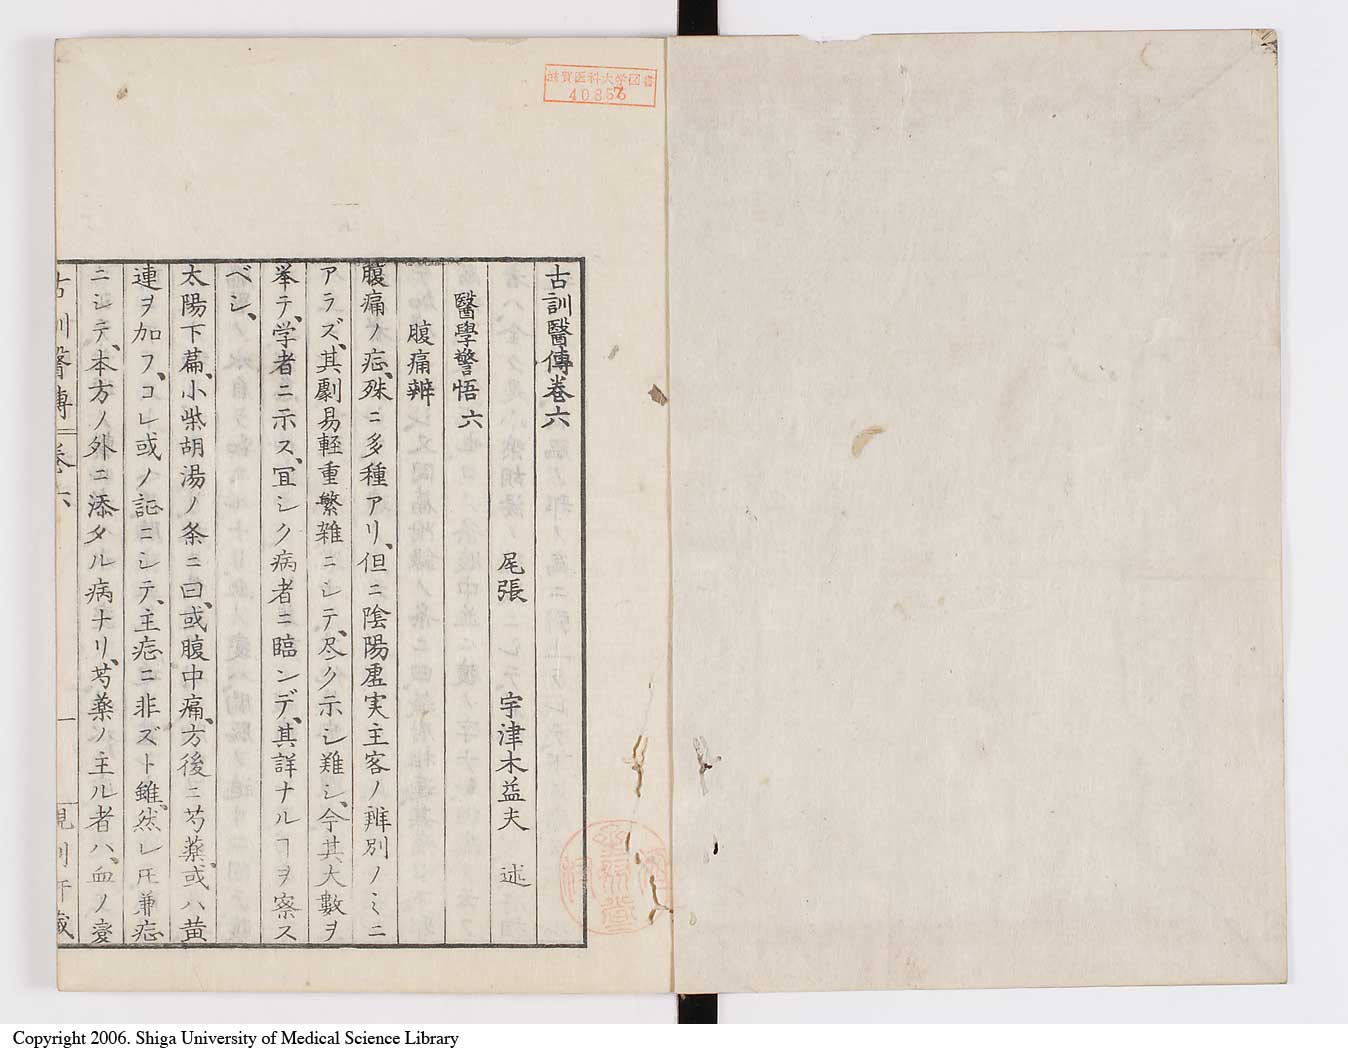 滋賀医科大学図書
古訓醫傳巻六
尾張　宇津木益夫　述
醫學警悟　六
腹痛辨
腹痛ノ症、殊ニ多種アリ、但ニ陰陽虚実主客ノ辨別ノミニ
アラズ、其劇易軽重繁雑ニシテ、尽ク示シ難シ、今其大數ヲ
挙テ、学者ニ示ス、冝シク病者ニ臨ンデ、其詳ナルヿヲ察ス
ベシ、
太陽下篇、小柴胡湯ノ条ニ曰、或腹中痛、方後ニ芍薬、或ハ黄
連ヲ加フ、コレ或ノ証ニシテ、主症ニ非ズト雖、然レ𪜈兼症
ニシテ、本方ノ外ニ添タル病ナリ、芍薬ノ主ル者ハ、血ノ変
古訓醫傳　巻六　一
Copyright 2006. Shiga University of Medical Science Library